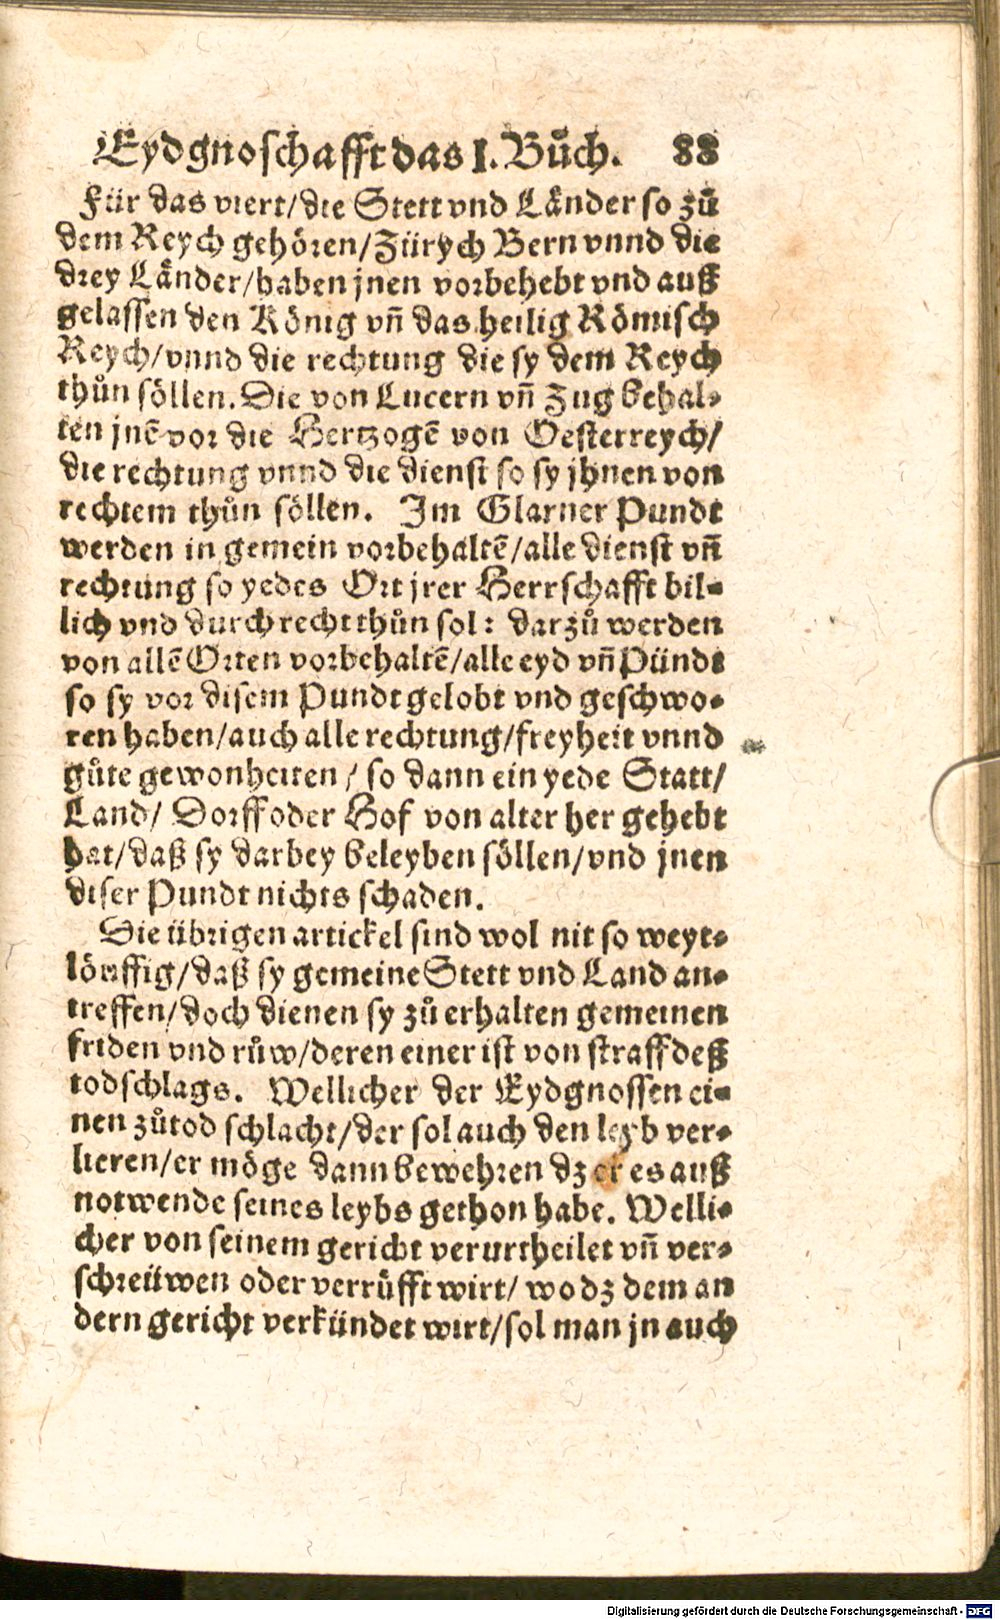 Eydgnoschafft das I. Bůch. 88
Für das viert/die Stett vnd Länder so zů
dem Reych gehören/Zürych Bern vnnd die
drey Länder/haben jnen vorbehebt vnd auß
gelassen den König vñ das heilig Römisch
Reych/vnnd die rechtung die sy dem Reych
thůn söllen. Die von Lucern vñ Zug behal-
ten jnẽ vor die Hertzogẽ von Oesterreych/
die rechtung vnnd die dienst so sy jhnen von
rechtem thůn söllen. Im Glarner Pundt
werden in gemein vorbehaltẽ/alle dienst vñ
rechtung so yedes Ort jrer Herrschafft bil-
lich vnd durch recht thůn sol: darzů werden
von allẽ Orten vorbehaltẽ/alle eyd vñ Pündt
so sy vor disem Pundt gelobt vnd geschwo-
ren haben/auch alle rechtung/freyheit vnnd
gůte gewonheiten/ so dann ein yede Statt/
Land/ Dorff oder Hof von alter her gehebt
hat/daß sy darbey beleyben söllen/vnd jnen
diser Pundt nichts schaden.
Die übrigen artickel sind wol nit so weyt-
löuffig/daß sy gemeine Stett vnd Land an-
treffen/doch dienen sy zů erhalten gemeinen
friden vnd růw/deren einer ist von straff deß
todschlags. Wellicher der Eydgnossen ei-
nen zůtod schlacht/der sol auch den leyb ver-
lieren/er möge dann bewehren dz er es auß
notwende seines leybs gethon habe. Welli-
cher von seinem gericht verurtheilet vñ ver-
schreüwen oder verrůfft wirt/ wo dz dem an
dern gericht verkündet wirt/sol man jn auch
Digitalisierung gefördert durch die Deutsche Forschungsgemeinschaft - DFG